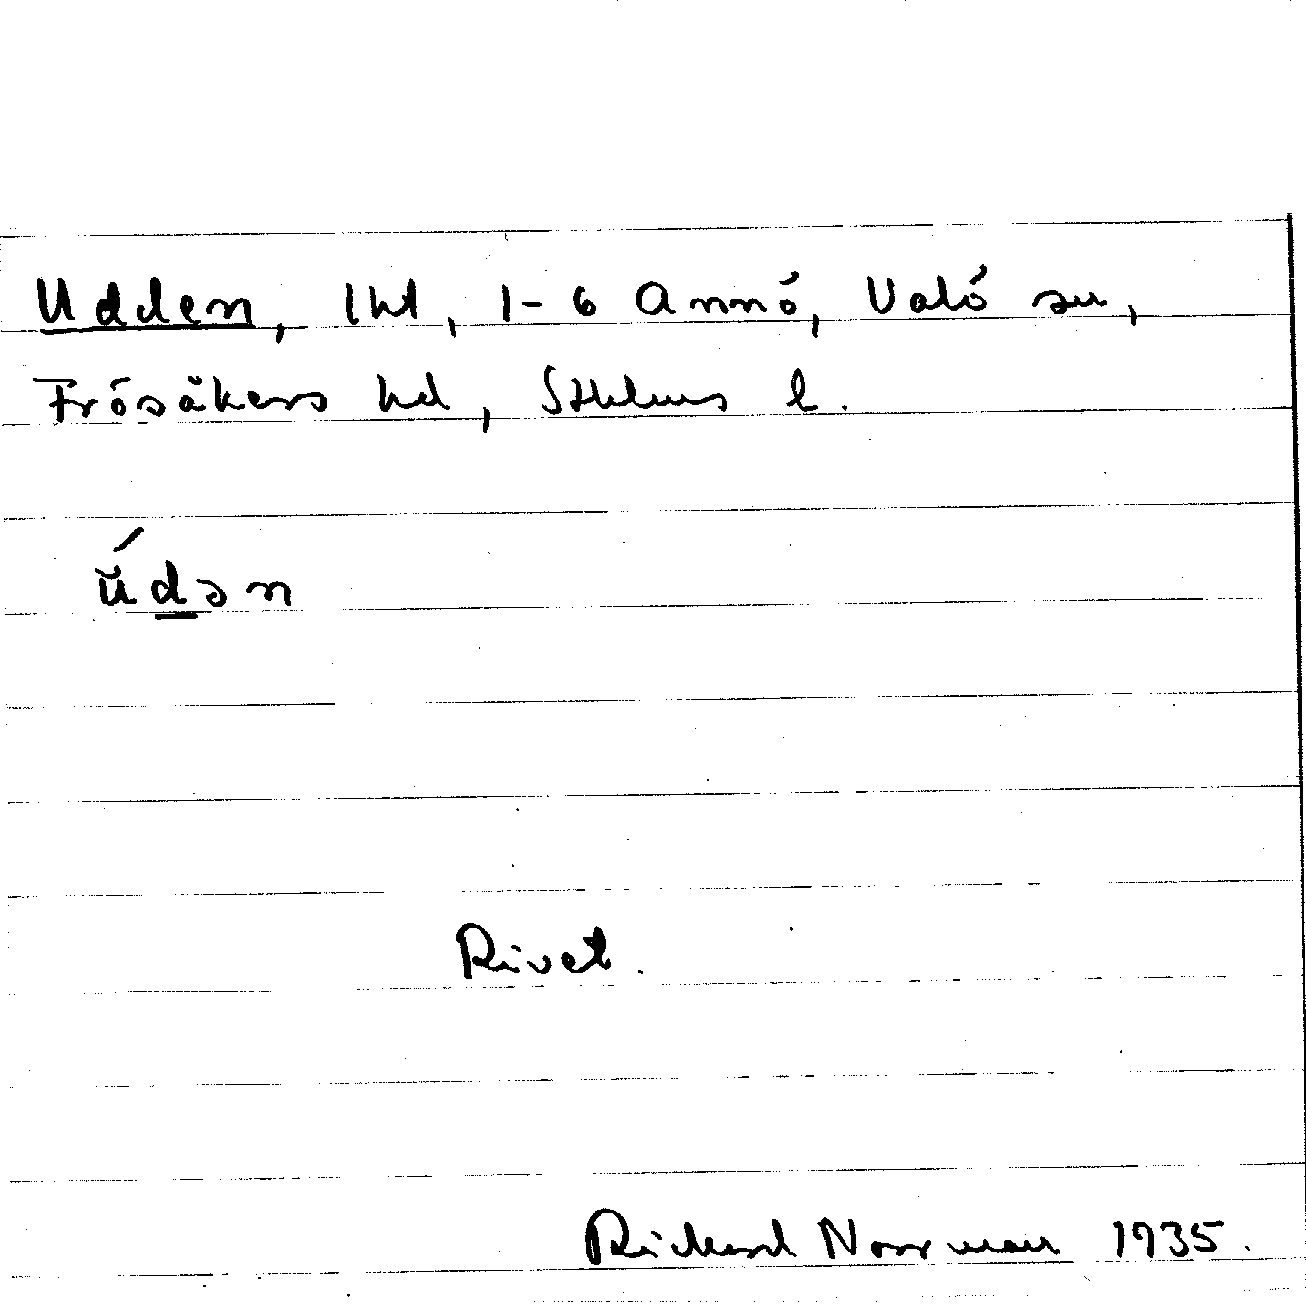 Udden, lht, 1-6 Annö, Valö sn,
Frösäkers hd, Sthlms l.
ŭ́dən
Rivet.
Richard Norrman 1935.